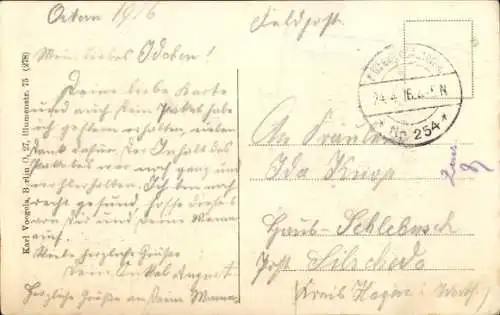 Ostern 1916
Mein liebes Idchen!
Deine liebe Karte
und auch Dein Paket habe
ich gestern erhalten, vielen
Dank dafür. Der Inhalt des
Paketes war noch ganz und
Ich bin noch
recht gesund, hoffe dieses
von Dir und Deine Mama
auch.
Viele herzliche Grüße
Dein Onkel August
Herzliche Grüße an Deine Mama
Karl Voegels, Berlin O. 27, Blumenstr. 75 (278)
Feldpost.
24.4.16. N
* No 254 *
An Fräulein
Ida Knipp
Haus-Schlebusch
Post Silschede
Kreis Hagen i. Westf.